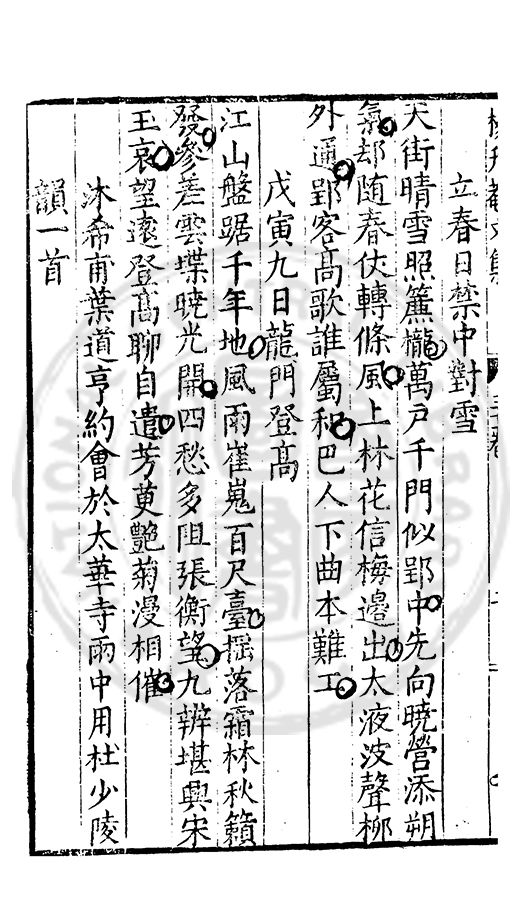 立春日禁中對雪
天街晴雪照簾櫳萬戸千門似郢中先向曉營添朔
氣却随春仗轉條風上林花信梅邉出太液波聲柳
外通郢客髙歌誰屬和巴人下曲本難工
戊寅九日龍門登髙
江山盤踞千年地風雨崔嵬百尺臺揺落霜林秋籟
發參差雲堞曉光開四愁多阻張衡望九辨堪興宋
玉哀望遠登髙聊自遣芳萸艷菊漫相催
沐希甫葉道亨約會於太華寺雨中用杜少陵
韻一首